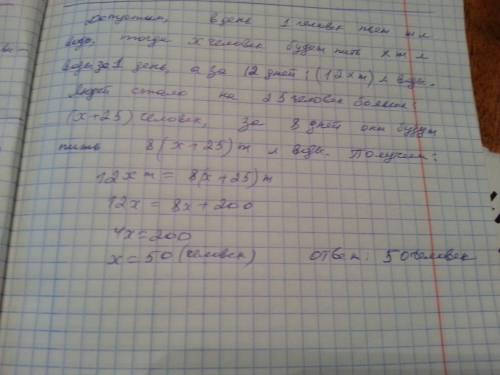 Допустим, в день 1 человек пьет m л
воды, тогда x человек будут пить xm л
воды за 1 день, а за 12 дней: (12xm) л воды.
Людей стало на 25 человек больше:
(x+25) человек, за 8 дней они будут
пить 8(x+25)m л воды. Получаем:
12xm = 8(x+25)m
12x = 8x+200
4x=200
x=50 (человек) ответ: 50 человек